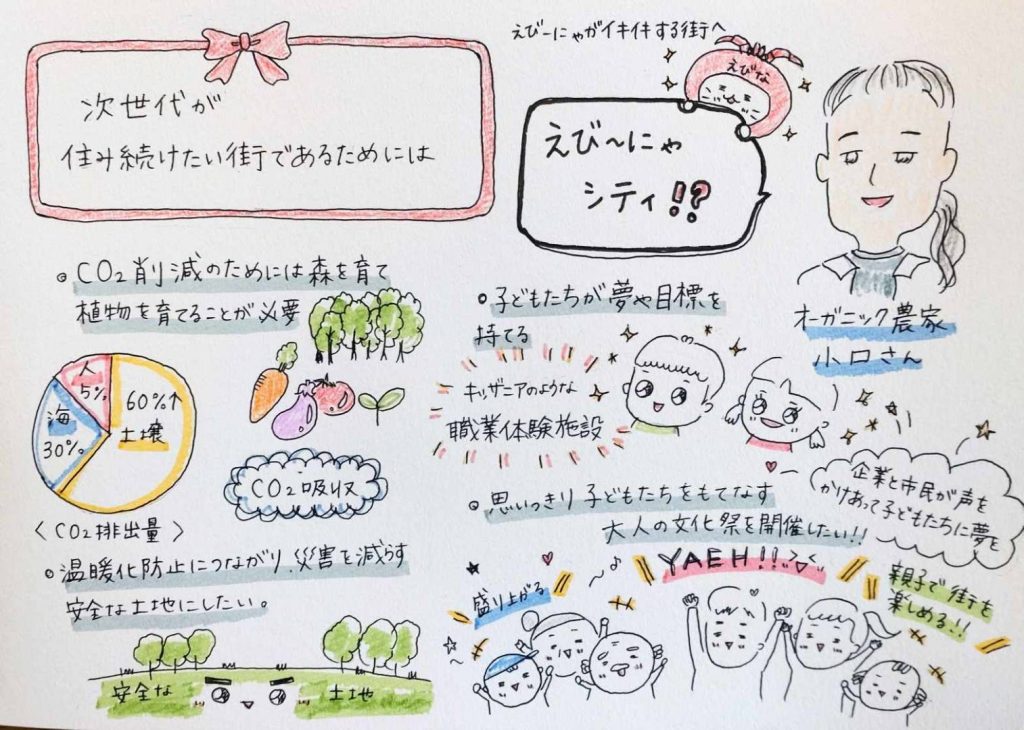 次世代が
住み続けたい街であるためには
えび〜にゃがイキイキする街へ
えびな
えび〜にゃ
シティ!!?
オーガニック農家
小口さん
。CO2削減のためには森を育て
植物を育てることが必要
人
5%
60%↑
土壌
海
30%
CO2吸収
〈CO2排出量〉
。温暖化防止につながり、災害を減らす
安全な土地にしたい。
安全な
土地
。子どもたちが夢や目標を
持てる
キッザニアのような
職業体験施設
企業と市民が声を
かけあって子どもたちに夢を
。思いっきり子どもたちをもてなす
大人の文化祭を開催したい!!
YAEH!!
盛り上がる
親子で街を
楽しめる!!